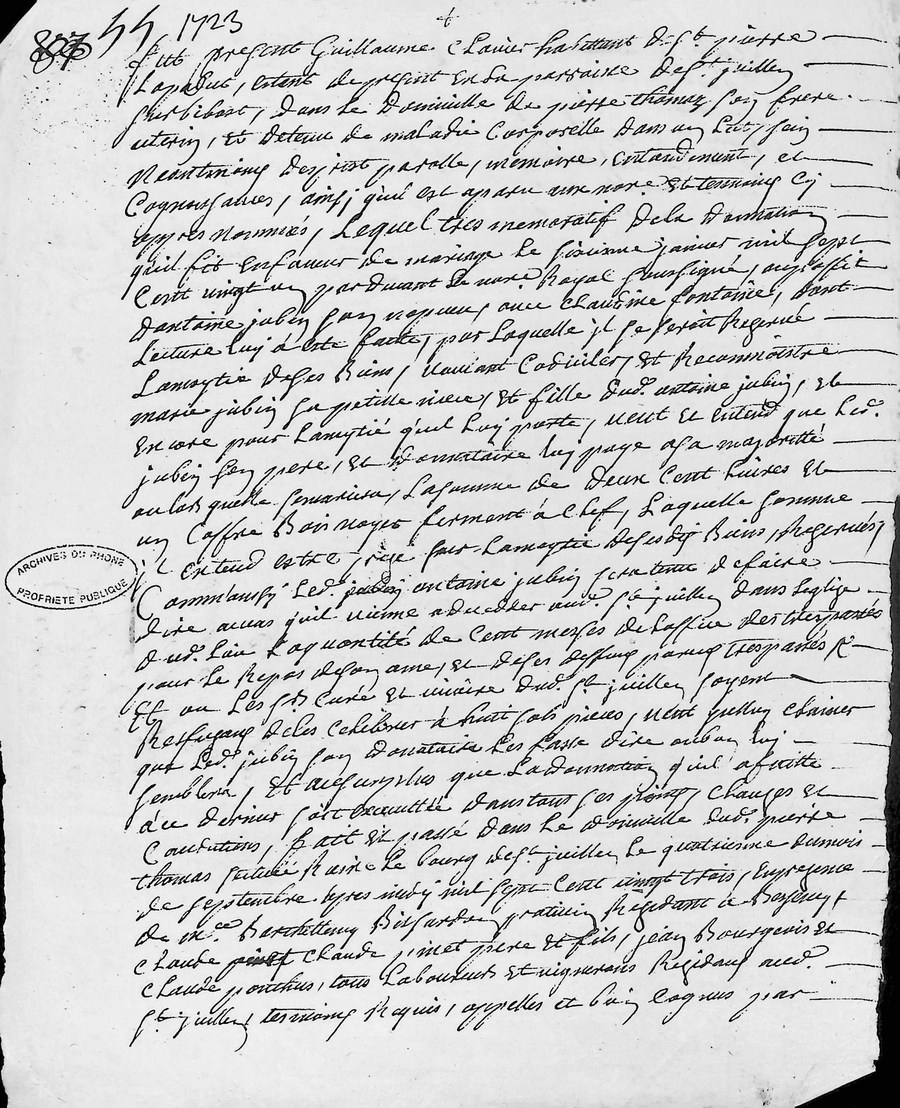 807 44 1723
fut present Guillaume Clavier habittant de St pierre
Lapalud, estant de present en la parroisse de St juillen
sur bibost, dans le domicille de pierre thomas son frere
uterin, et detenu de maladie Corporelle dans un Lict, sain
neantmoins desprist parolle, memoire, entandement, et
Cognoissances, ainsi quil est aparu aux nore et tesmoins Cy
appres nommés, Lequel tres memoratif de la donnation
quil fit en faveur de mariage le sixieme janvier mil sept
Cent vingt un par devant le nore Royal soussigné, au proffit
dantoine jubin son nepveu, avec Claudine fontaine, dont
Lecture luy a este faitte, par laquelle il se seroit Reservé
Lamoytié de ses Biens, voulant Codiciler, et Reconnoistre
marie jubin sa petitte niece, et fille dud. antoine jubin, et
Encore pour Lamytié quil luy porte, veut et entend que led.
jubin son pere, et donnataire luy paye a sa majoritté
ou lors quelle semariera, La somme de deux Cent Livres et
un Coffre Bois noyer fermant à Clef, Laquelle somme
il entend estre prise sur Lamoytie de sesdits Biens, Reservés,
Comm'aussy Led. antoine jubin sera tenu de faire
dire au cas quil vienne a decedder aud. St juillen dans leglise
dud. Lieu La quantité de Cent messes de Loffice des trespassés
pour le Repos de son ame, et de ses deffuns parens trespassés
Et ou Les Srs Curé et vicaire dud. St juillen soyent
Reffusans de les Celebrer à huit sols pieces, veut
que Led. jubin son donataire Les fasse dire ou bon luy
semblera, Et au surplus que La donnation quil a faitte
à ce dernier soit executtée dans tous ses points, charges et
Conditions, fait et passé dans le domicille dud. pierre
thomas le bourg de St juillen le quatrieme du mois
de septembre apres midy mil sept Cent vingt trois, En presence
de Me. Barthellemy praticien Residant a Bessenay
Claude Claude pinet pere et fils, jean Bourgeois et
Claude ponthus, tous Laboureurs et vignerons Residans aud.
St juillen, tesmoins Requis, appelles et bien Cognus par
ARCHIVES DU RHONE
PROPRIETE PUBLIQUE